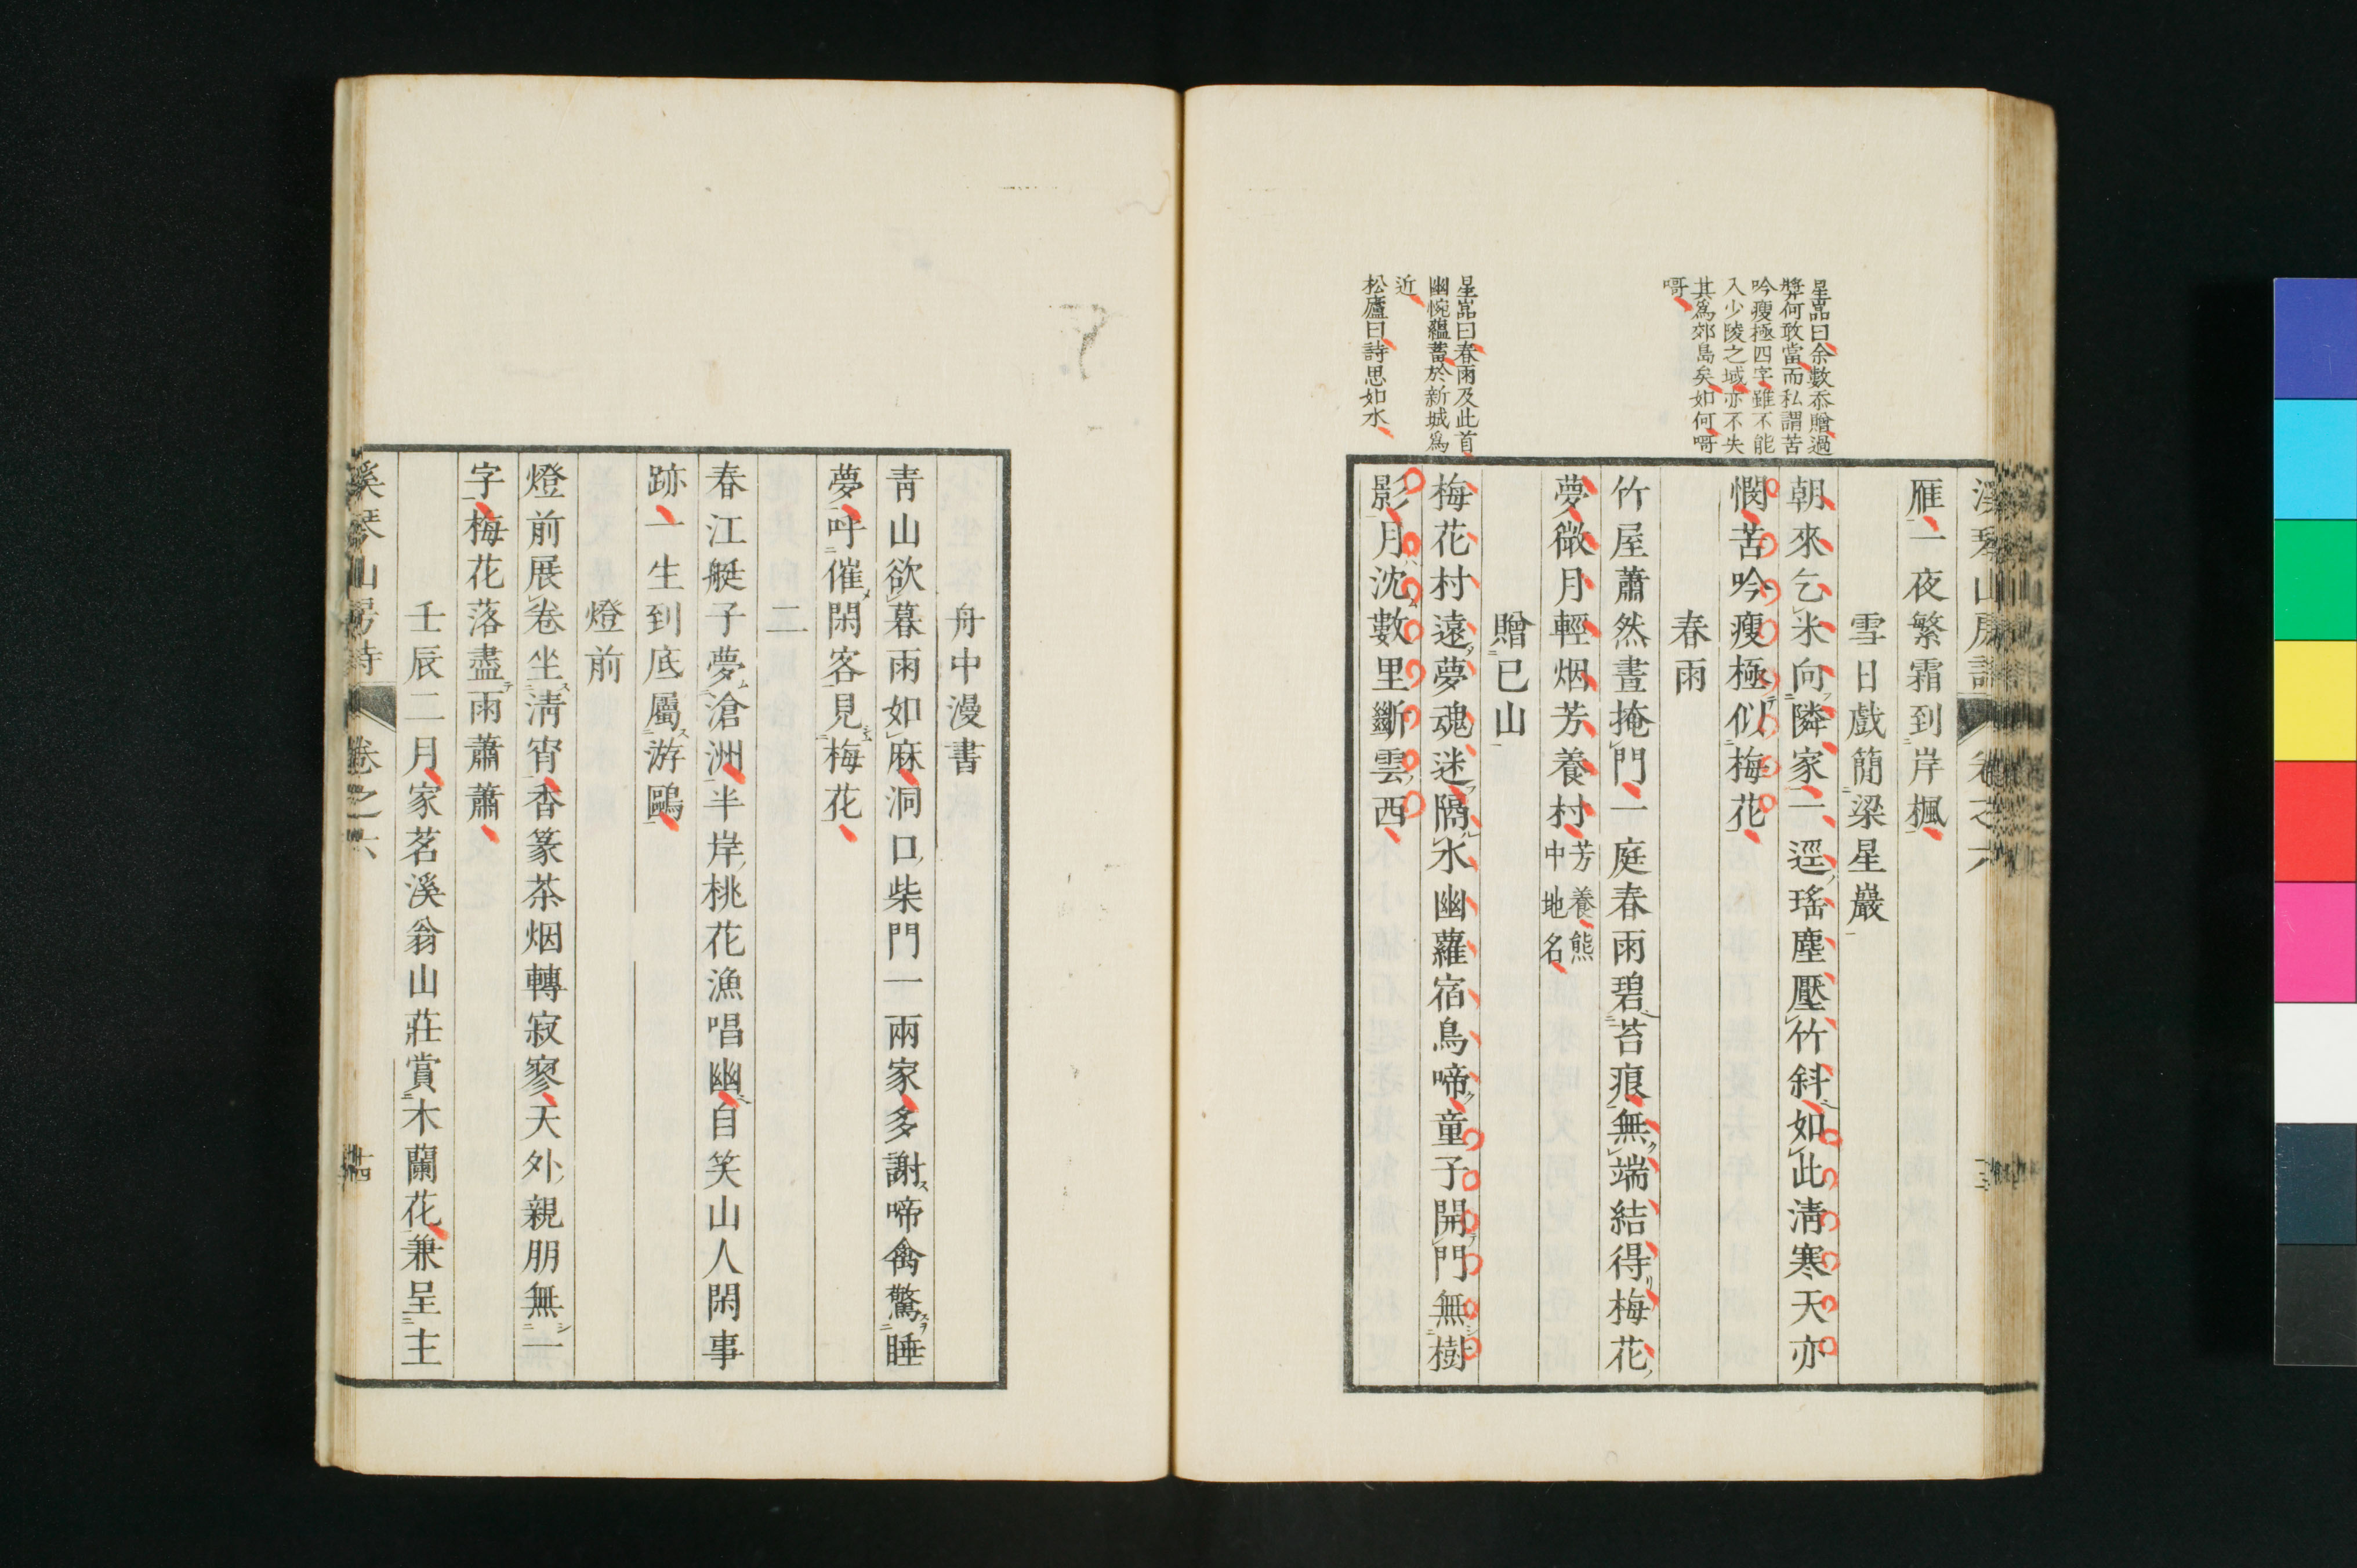 溪琴山房詩 卷之六
雁一夜繁霜到岸楓
雪日戲簡梁星巖
朝來乞米向隣家一逕瑤塵壓竹斜如此淸寒天亦
憫苦吟瘦極似梅花
春雨
竹屋蕭然晝掩門一庭春雨碧苔痕無端結得梅花
夢微月輕烟芳養村芳養熊
中地名
贈已山
梅花村遠夢魂迷隔水幽蘿宿鳥啼童子開門無樹
影月沈數里斷雲西
星嵓曰余數忝贈過
奬何敢當而私謂苦
吟瘦極四字雖不能
入少陵之域亦不失
其爲郊島矣如何嘚
嘚
星嵓曰春雨及此首
幽惋蘊蓄於新城爲
近
松廬曰詩思如水
舟中漫書
靑山欲暮雨如麻洞口柴門一兩家多謝啼禽驚睡
夢呼催閑客見梅花
二
春江艇子夢滄洲半岸桃花漁唱幽自笑山人閑事
跡一生到底屬游鷗
燈前
燈前展卷坐淸宵香篆茶烟轉寂寥天外親朋無一
字梅花落盡雨蕭蕭
壬辰二月家茗溪翁山莊賞木蘭花兼呈主
溪琴山房詩 卷之六 十四